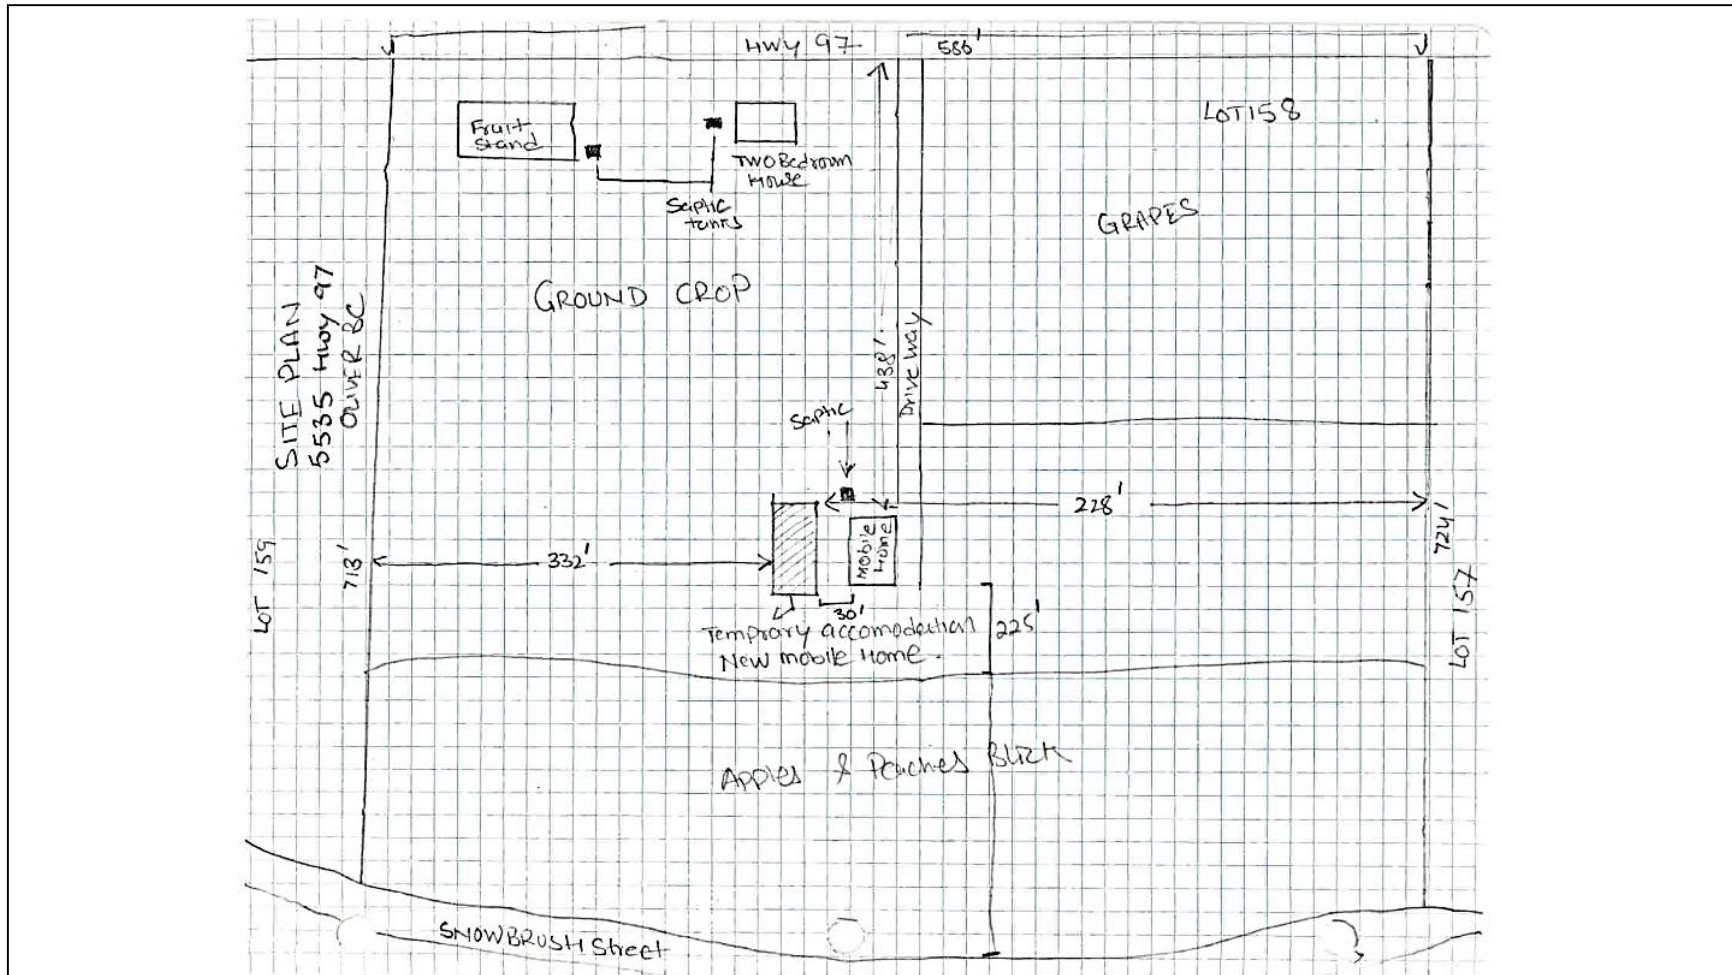 HWY 97
586'
LOT 158
Fruit
stand
TWO Bedroom
House
Septic
tanks
GRAPES
GROUND CROP
SITE PLAN
5535 Hwy 97
OLIVER BC
438'
Drive way
Septic
228'
332'
Mobile
Home
30'
Temprary accomodation
New mobile Home.
225'
713'
LOT 159
724'
LOT 157
Apples & Peaches Block
SNOWBRUSH Street